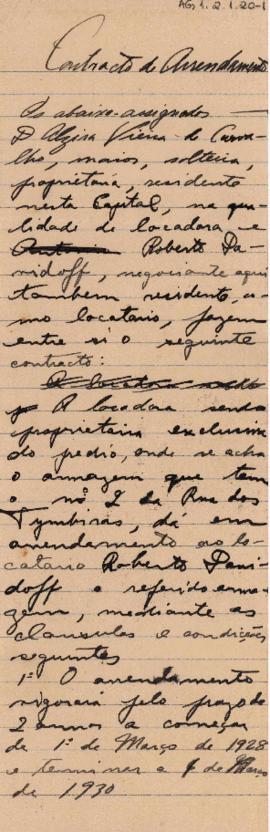 AG1.2.1.20-1
Contracto de Arrendamento
Os abaixo-assignados
D Alzira Vieira de Carva-
lho, maior, solteira,
proprietaria, residente
nesta Capital, na qua-
lidade de locadora e
Roberto Da-
vidoff, negociante aqui
tambem residente, co-
mo locatario, fazem
entre si o seguinte
contracto:
A locadora
A locadora sendo
proprietaria exclusiva
do predio, onde se acha
o armazem que tem
o nº 2 da Rua dos
Tymbiras, dá em
arrendamento ao lo-
catario Roberto Davi-
doff o referido arma-
zem, mediante as
clausulas e condições
seguintes
1ª O arrendamento
vigorará pelo prazo de
2 annos a começar
de 1º de Março de 1928
e terminar a 1 de Março
de 1930